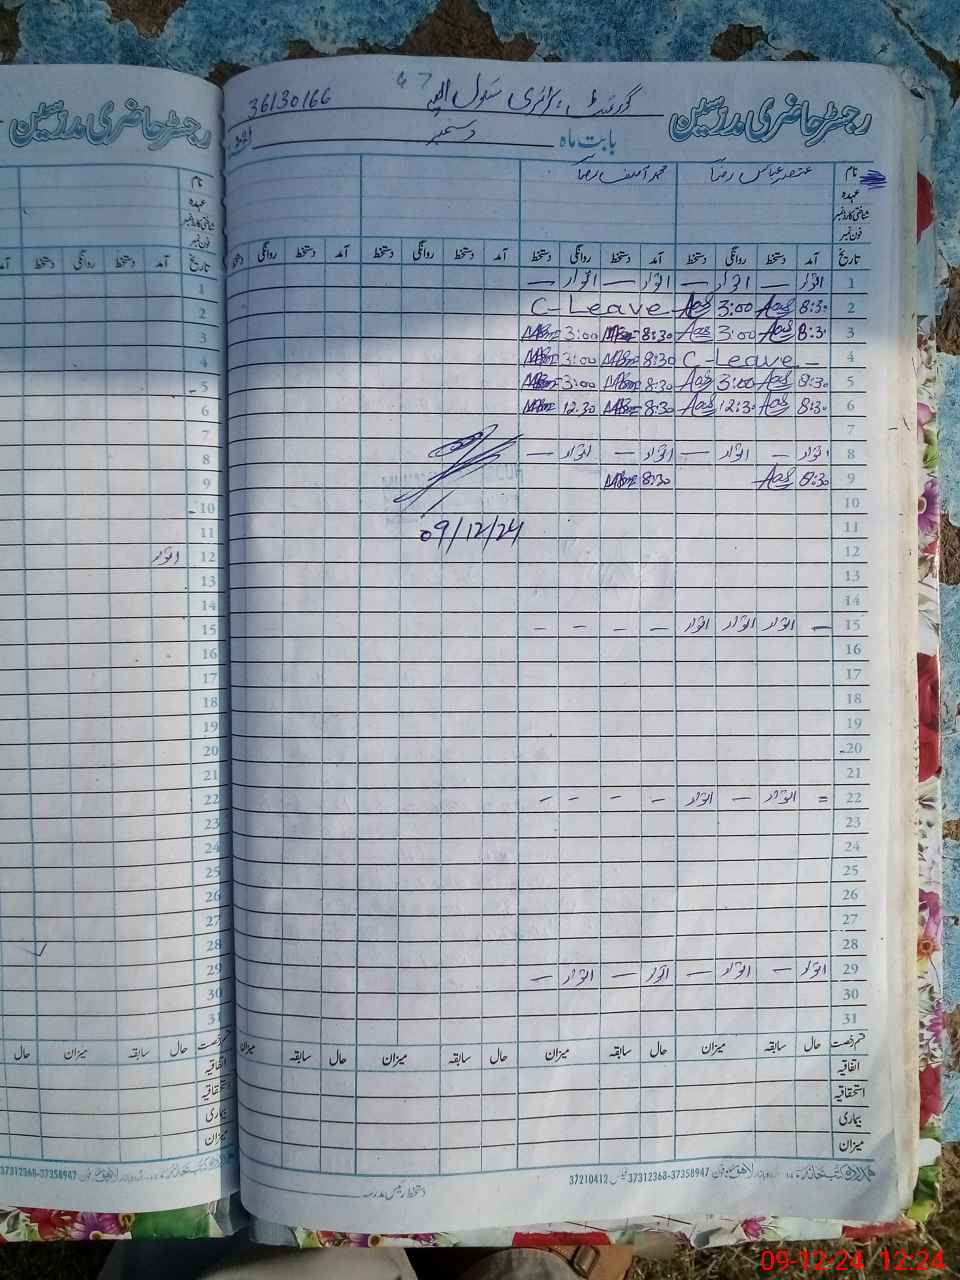 رجسٹر حاضری مدرسین
گورنمنٹ پرائمری سکول 36130166
رجسٹر حاضری مدرسین
بابت ماہ دسمبر
نام عنصر عباس رضا محمد آصف رضا
عہدہ
شناختی کارڈ نمبر
فون نمبر
تاریخ آمد دستخط روانگی دستخط آمد دستخط روانگی دستخط آمد دستخط روانگی دستخط آمد دستخط روانگی دستخط
1 اتوار — اتوار — اتوار — اتوار —
2 8:30 Aas 3:00 Aas C-Leave
3 8:3 Aas 3:00 Aas 8:30 3:00
4 C-Leave 8:30 3:00
5 8:30 Aas 3:00 Aas 8:30 3:00
6 8:30 Aas 12:30 Aas 8:30 12.30
7
8 اتوار — اتوار — اتوار — اتوار —
9 8:30 Aas 8:30
10
11
09/12/24
12
13
14
15 — اتوار اتوار اتوار — — — —
16
17
18
19
20
21
22 = اتوار — اتوار — — — —
23
24
25
26
27
28
29 اتوار — اتوار — اتوار — اتوار —
30
31
قسم رخصت حال سابقہ میزان حال سابقہ میزان حال سابقہ میزان حال سابقہ میزان
اتفاقیہ
استحقاقیہ
بیماری
میزان
37312368-37358947 فیکس 37210412
دستخط رئیس مدرسہ
نام
عہدہ
شناختی کارڈ نمبر
فون نمبر
تاریخ آمد دستخط روانگی دستخط آمد
1
2
3
4
5
6
7
8
9
10
11
12 اتوار
13
14
15
16
17
18
19
20
21
22
23
24
25
26
27
28
29
30
31
قسم رخصت حال سابقہ میزان حال
اتفاقیہ
استحقاقیہ
بیماری
میزان
37312368-37358947
09-12-24 12:24